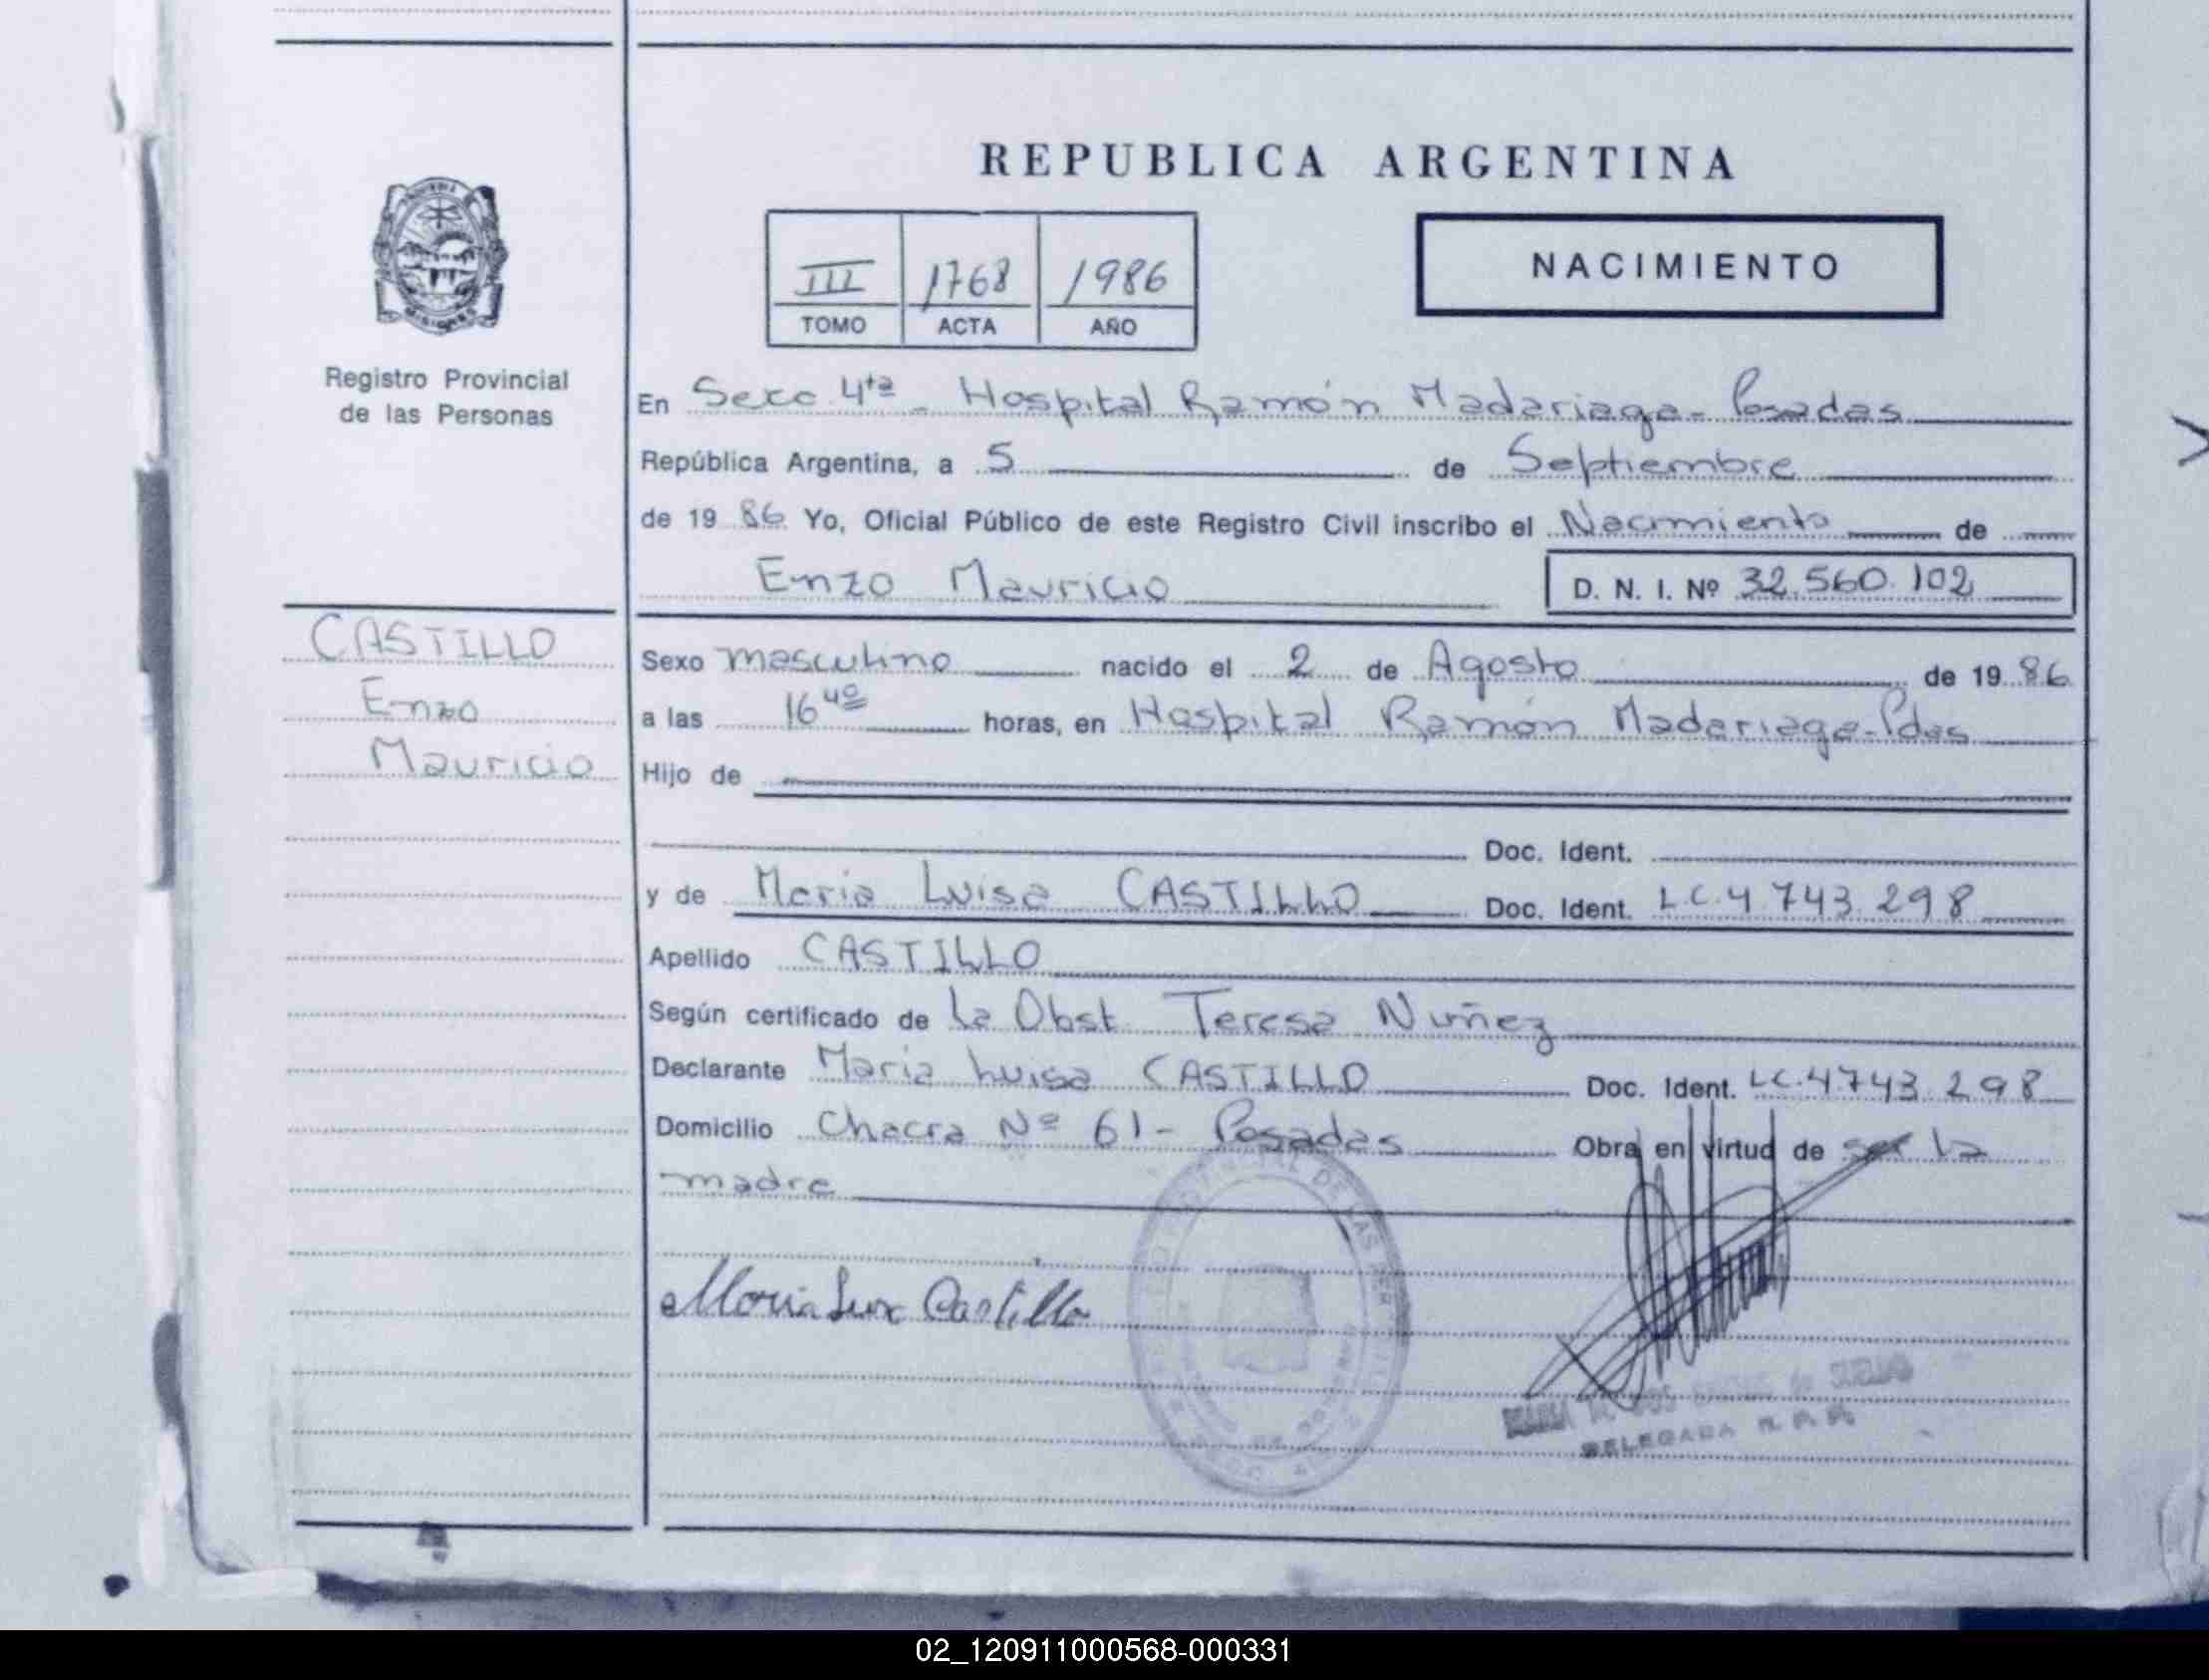 REPUBLICA ARGENTINA
III 1768 1986
TOMO ACTA AÑO
NACIMIENTO
Registro Provincial
de las Personas
En Secc 4ta - Hospital Ramón Madariaga - Posadas
República Argentina, a 5 de Septiembre
de 19 86 Yo, Oficial Público de este Registro Civil inscribo el Nacimiento de
Enzo Mauricio D. N. I. Nº 32.560.102
CASTILLO
Enzo
Mauricio
Sexo masculino nacido el 2 de Agosto de 19 86
a las 16 40 horas, en Hospital Ramón Madariaga - Pdas
Hijo de
Doc. Ident.
y de Maria Luisa CASTILLO Doc. Ident. LC.4 743.298
Apellido CASTILLO
Según certificado de La Obst. Teresa Nuñez
Declarante Maria Luisa CASTILLO Doc. Ident. LC.4743.298
Domicilio Chacra Nº 61 - Posadas Obra en virtud de ser la
madre
Maria Luisa Castillo
DELEGADA R. P. P.
02_120911000568-000331